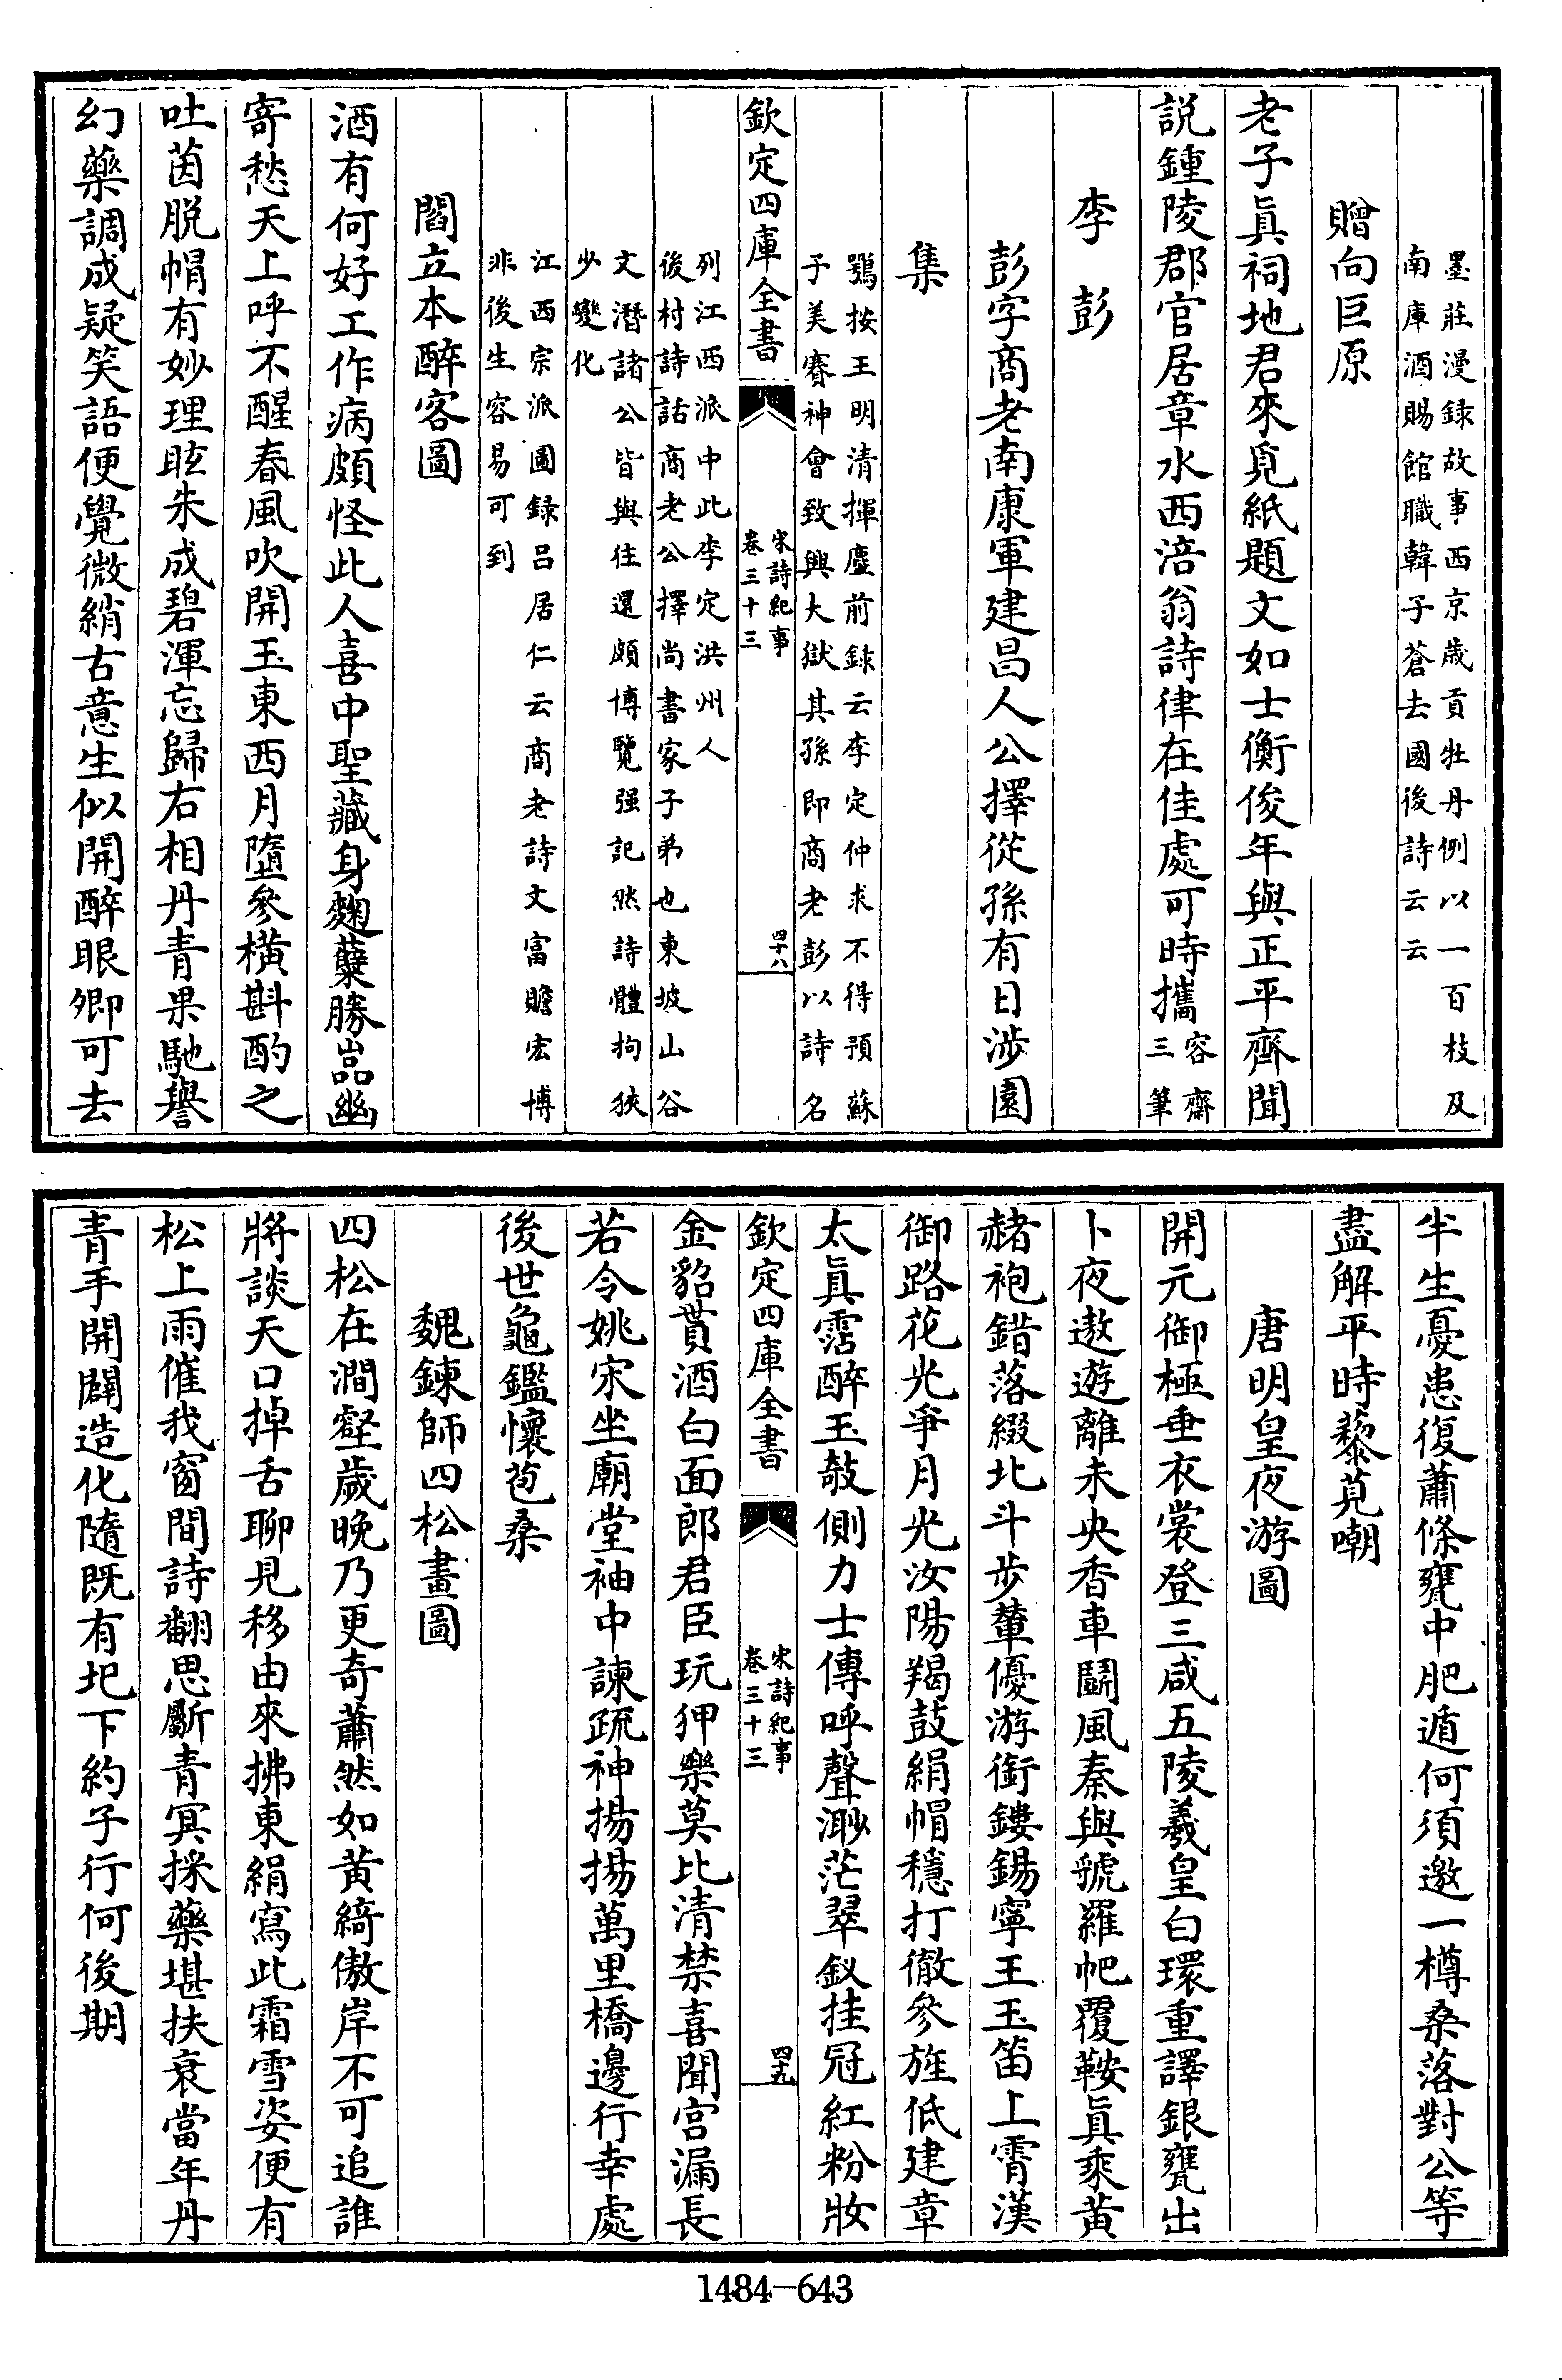 墨莊漫録故事西京歲貢牡丹例以一百枝及
南庫酒賜館職韓子蒼去國後詩云云
贈向巨原
老子眞祠地君來覓紙題文如士衡俊年與正平齊聞
説鍾陵郡官居章水西涪翁詩律在佳處可時攜容齋
三筆
李彭
彭字商老南康軍建昌人公擇從孫有日涉園
集
鶚按王明清揮麈前録云李定仲求不得預蘇
子美賽神會致興大獄其孫即商老彭以詩名
欽定四庫全書
宋詩紀事
卷三十三
四十八
列江西派中此李定洪州人
後村詩話商老公擇尚書家子弟也東坡山谷
文潛諸公皆與往還頗博覽强記然詩體拘狹
少變化
江西宗派圖録吕居仁云商老詩文富贍宏博
非後生容易可到
閻立本醉客圖
酒有何好工作病頗怪此人喜中聖藏身麴蘖勝嵓幽
寄愁天上呼不醒春風吹開玉東西月墮參橫斟酌之
吐茵脱帽有妙理眩朱成碧渾忘歸右相丹青果馳譽
幻藥調成疑笑語便覺微綃古意生似開醉眼卿可去
半生憂患復蕭條甕中肥遁何須邀一樽桑落對公等
盡解平時藜莧嘲
唐明皇夜游圖
開元御極垂衣裳登三咸五陵羲皇白環重譯銀甕出
卜夜遨遊離未央香車鬭風秦與虢羅帊覆鞍眞乘黄
赭袍錯落綴北斗步輦優游銜鏤鍚寧王玉笛上霄漢
御路花光爭月光汝陽羯鼓絹帽穩打徹參旌低建章
太眞霑醉玉攲側力士傳呼聲渺茫翠釵挂冠紅粉妝
欽定四庫全書
宋詩紀事
卷三十三
四十九
金貂貰酒白面郎君臣玩狎樂莫比清禁喜聞宫漏長
若令姚宋坐廟堂袖中諫疏神揚揚萬里橋邊行幸處
後世龜鑑懷苞桑
魏鍊師四松畫圖
四松在澗壑歲晩乃更奇蕭然如黄綺傲岸不可追誰
將談天口掉舌聊見移由來拂東絹寫此霜雪姿便有
松上雨催我窗間詩翻思斸青冥採藥堪扶衰當年丹
青手開闢造化隨既有圯下約子行何後期
1484-643